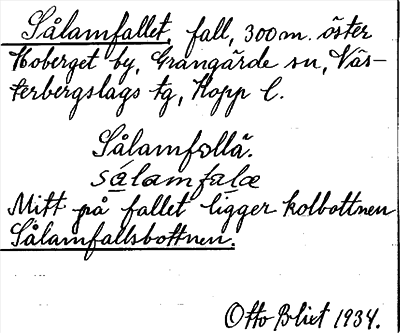 Sålamfallet, fall, 300 m. öster
Hoberget by, Grangärde sn, Väs-
terbergslags tg, Kopp l.
Sålamfallä.
sálamfalæ
Mitt på fallet ligger kolbottnen
Sålamfallsbottnen.
Otto Blixt 1934.